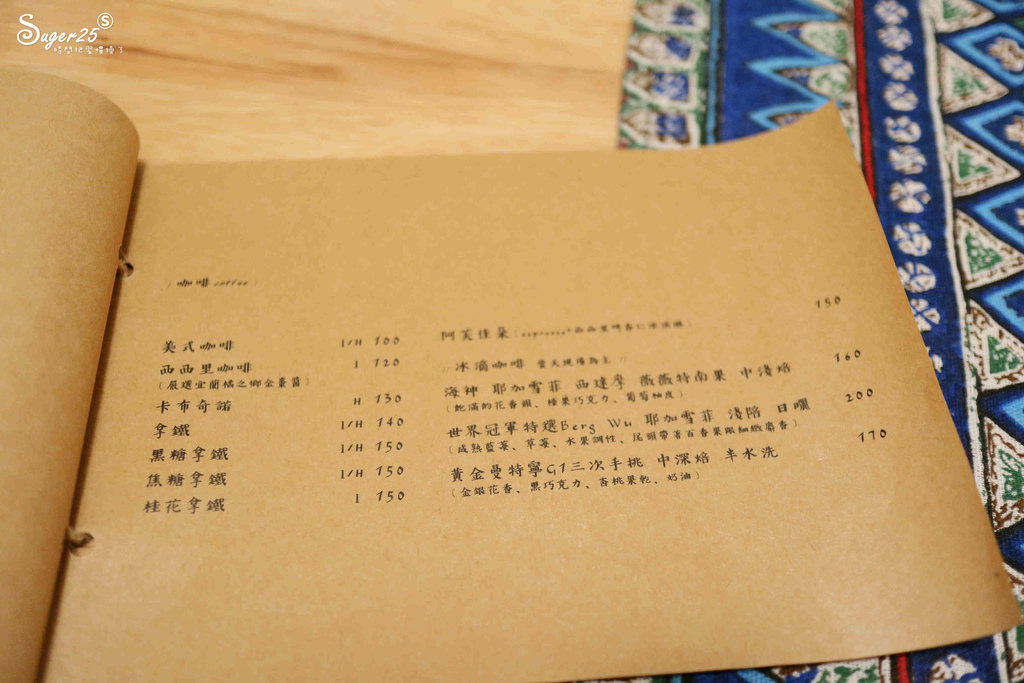 Suger25 S
時間把習慣換了
( 咖啡 coffee )
美式咖啡 I/H 100
西西里咖啡 I 120
(嚴選宜蘭橘之鄉金棗醬)
卡布奇諾 H 130
拿鐵 I/H 140
黑糖拿鐵 I/H 150
焦糖拿鐵 I/H 150
桂花拿鐵 I 150
阿芙佳朵 (espresso+西西里啤酒冰淇淋) 150
// 冰滴咖啡 當天現場為主 //
海神 耶加雪菲 西達摩 薇薇特南果 中淺焙 160
(飽滿的花香韻、榛果巧克力、葡萄柚皮)
世界冠軍特選Berg Wu 耶加雪菲 淺陪 日曬 200
(成熟藍莓、草莓、水果調性、尾韻帶著百香果跟細緻麝香)
黃金曼特寧G1三次手挑 中深焙 半水洗 170
(金銀花香、黑巧克力、杏桃果乾、奶油)